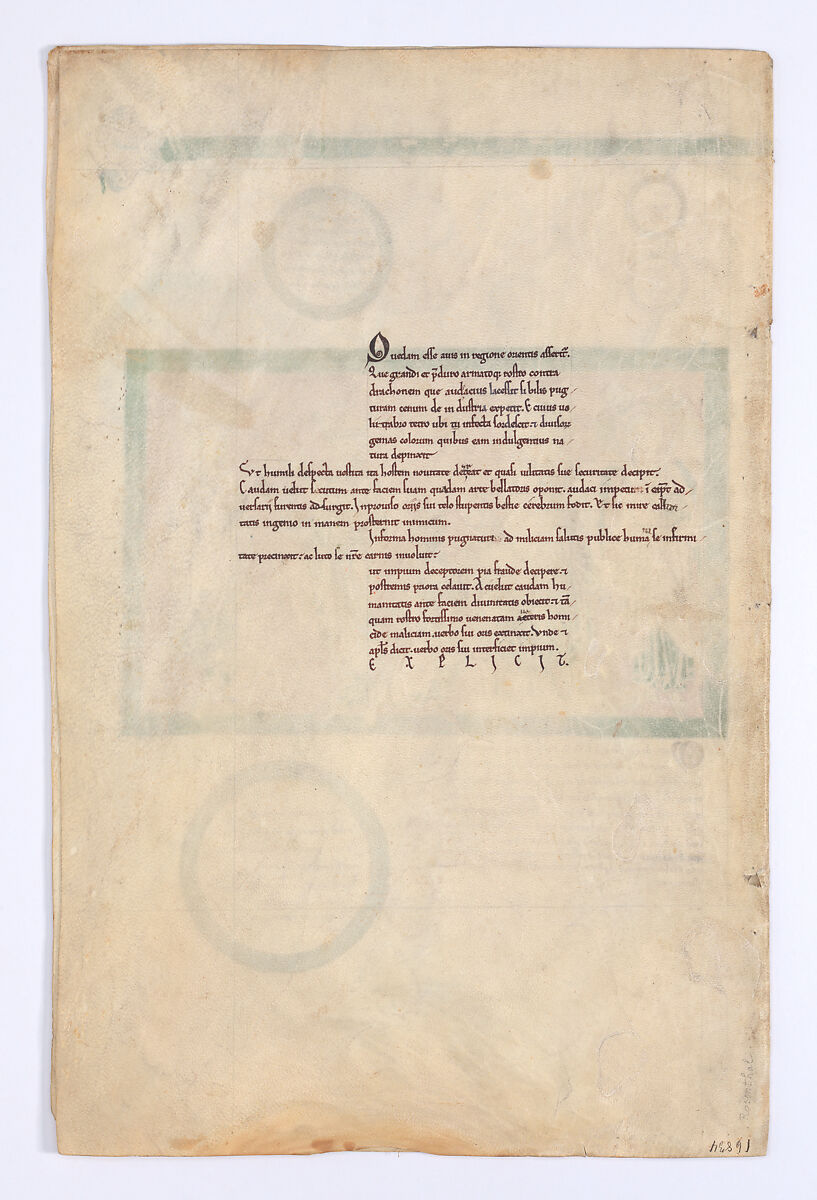 Quedam esse auis in regione orientis asserit᷑.
Que grandi et p̄duro armatoq; rostro contra
drachonem que audacius lacessit sibilis pug-
turam cenum de industria expetit. & cuius uo-
lutabro tetro ubi tū infecta sordescit. & diuisor̄
gemas colorum quibus eam indulgentius na-
tura depinxit
Vt humili despecta uestita ita hostem nouitate deterreat et quasi uilitatis sue securitate decipit.
Caudam uelut scutum ante faciem suam quadam arte bellatoris oponit. audaci impetu in cap̄t ad-
uersarii furentis adsurgit. Inprouiso oris sui telo stupentis bestie cerebrum fodit. Et sic mire
tatis ingenio inmanem prosternit inimicum.
Informa hominis pugnaturus ad miliciam salutis publice se infirmi-
tate precinxit. ac luto se nr̄e carnis inuoluit.
ut impium deceptorem pia fraude decipere. &
postremis priora celauit. A c uelut caudam hu-
manitatis ante faciem diuinitatis obiecit. & tā-
quam rostro fortissimo uenenatam ueteris homi-
cide maliciam. uerbo sui oris extinxit. Vnde &
apl's dicit. uerbo oris sui interficiet impium.
EXPLICIT.
Rosenthal
16834